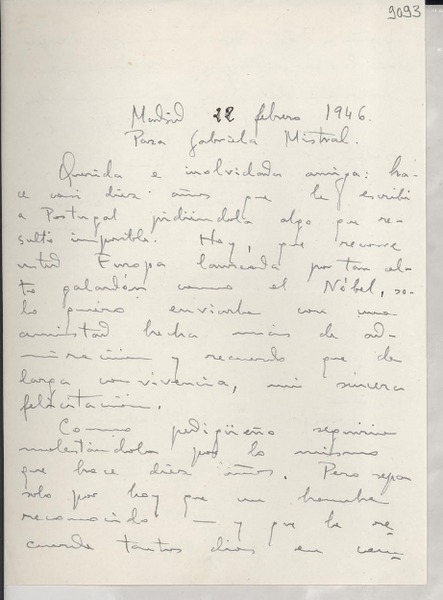 9093
Madrid 22 febrero 1946.
Para Gabriela Mistral.
Querida e inolvidada amiga: ha-
ce casi diez años que le escribí
a Portugal pidiéndola algo que re-
sultó imposible. Hoy, que recorre
usted Europa laureada por tan al-
to galardón como el Nóbel, so-
lo quiero enviarle con una
amistad hecha más de ad-
miración y recuerdo que de
larga convivencia, mi sincera
felicitación.
Como pedigüeño seguiría
molestándola por lo mismo
que hace diez años. Pero sepa
solo por hoy que un hombre
reconocido — y que la re-
cuerda tantos días en